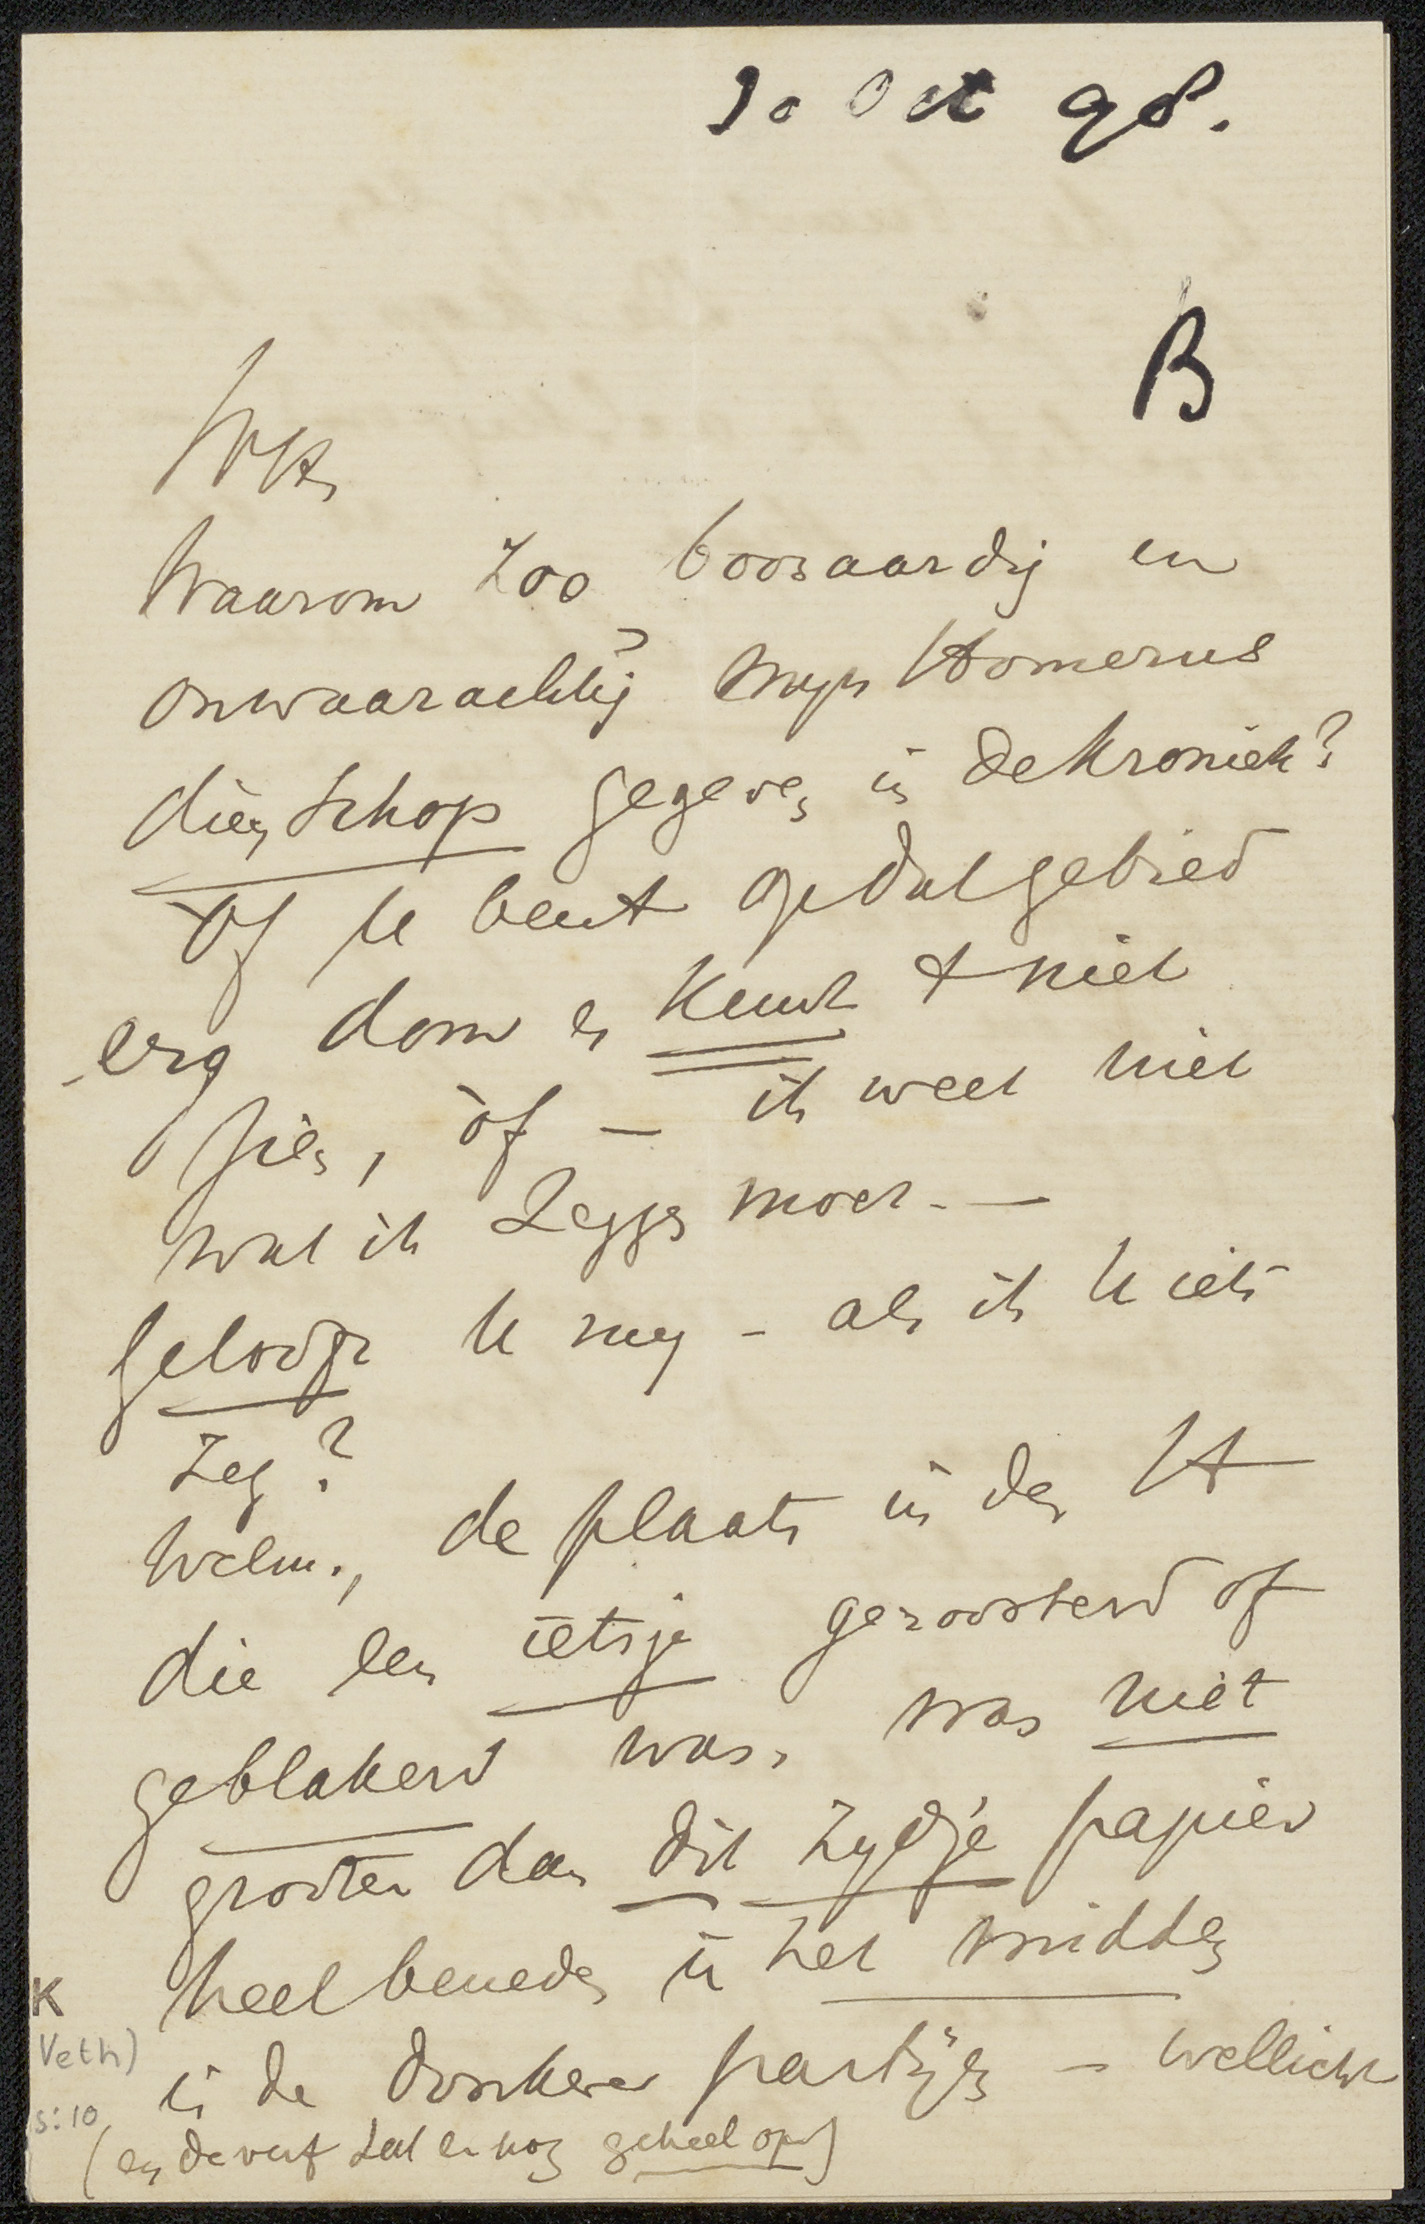 30 Oct 98.
B
Waarom zoo boosaardig en
onwaarachtig mijn Homerus
dien schop gegeven in de Kroniek?
Of U bent op dat gebied
erg dom en kunt 't niet
zien, òf — ik weet niet
wat ik zeggen moet. —
Gelooft U mij – als ik U iets
zeg?
Welnu, de plaats in den H
die een ietsje geroosterd of
geblakerd was, was niet
grooter dan dit zydje papier
heel beneden in het midden
in de donkere partijen – wellicht
(en de verf zat er nog geheel op)
K
Veth)
s: 10